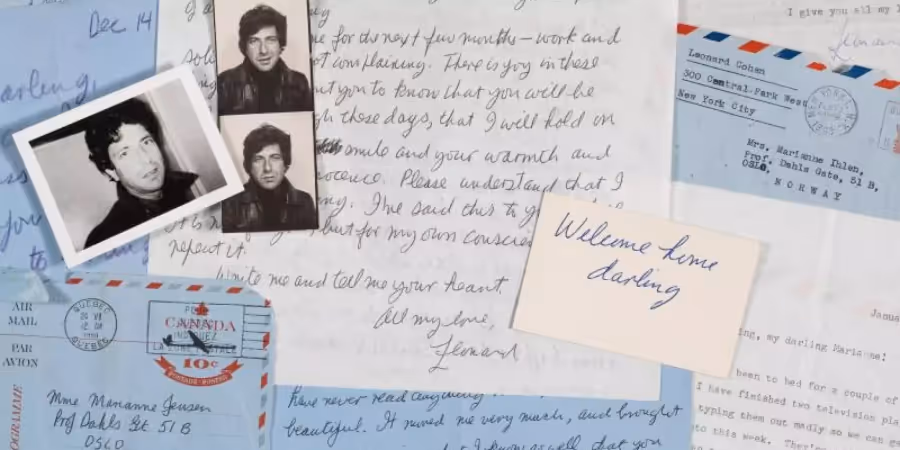 Dec 14
arling,
me for the next few months — work and
not complaining. There is joy in these
want you to know that you will be
gh these days, that I will hold on
smile and your warmth and
nocence. Please understand that I
ny. I've said this to y
but for my own conscie
repeat it.
Write me and tell me your heart.
All my love,
Leonard
I give you all my l
Leonard Cohen
300 Central Park West
New York City
Mrs. Marianne Ihlen,
Prof. Dahls Gate, 51 B,
OSLO,
NORWAY
Welcome home
darling
Janua
ng, my darling Marianne:
been to bed for a couple of
I have finished two television pla
typing them out madly so we can ge
to this week. They're
AIR
MAIL
PAR
AVION
QUEBEC
QUEBEC
CANADA
10c
POSTAGE-POSTES
OGRAMME
Mme Marianne Jensen
Prof Dahls Gt 51 B
OSLO
have never read anything
beautiful. It moved me very much, and brought
I know as well, that you